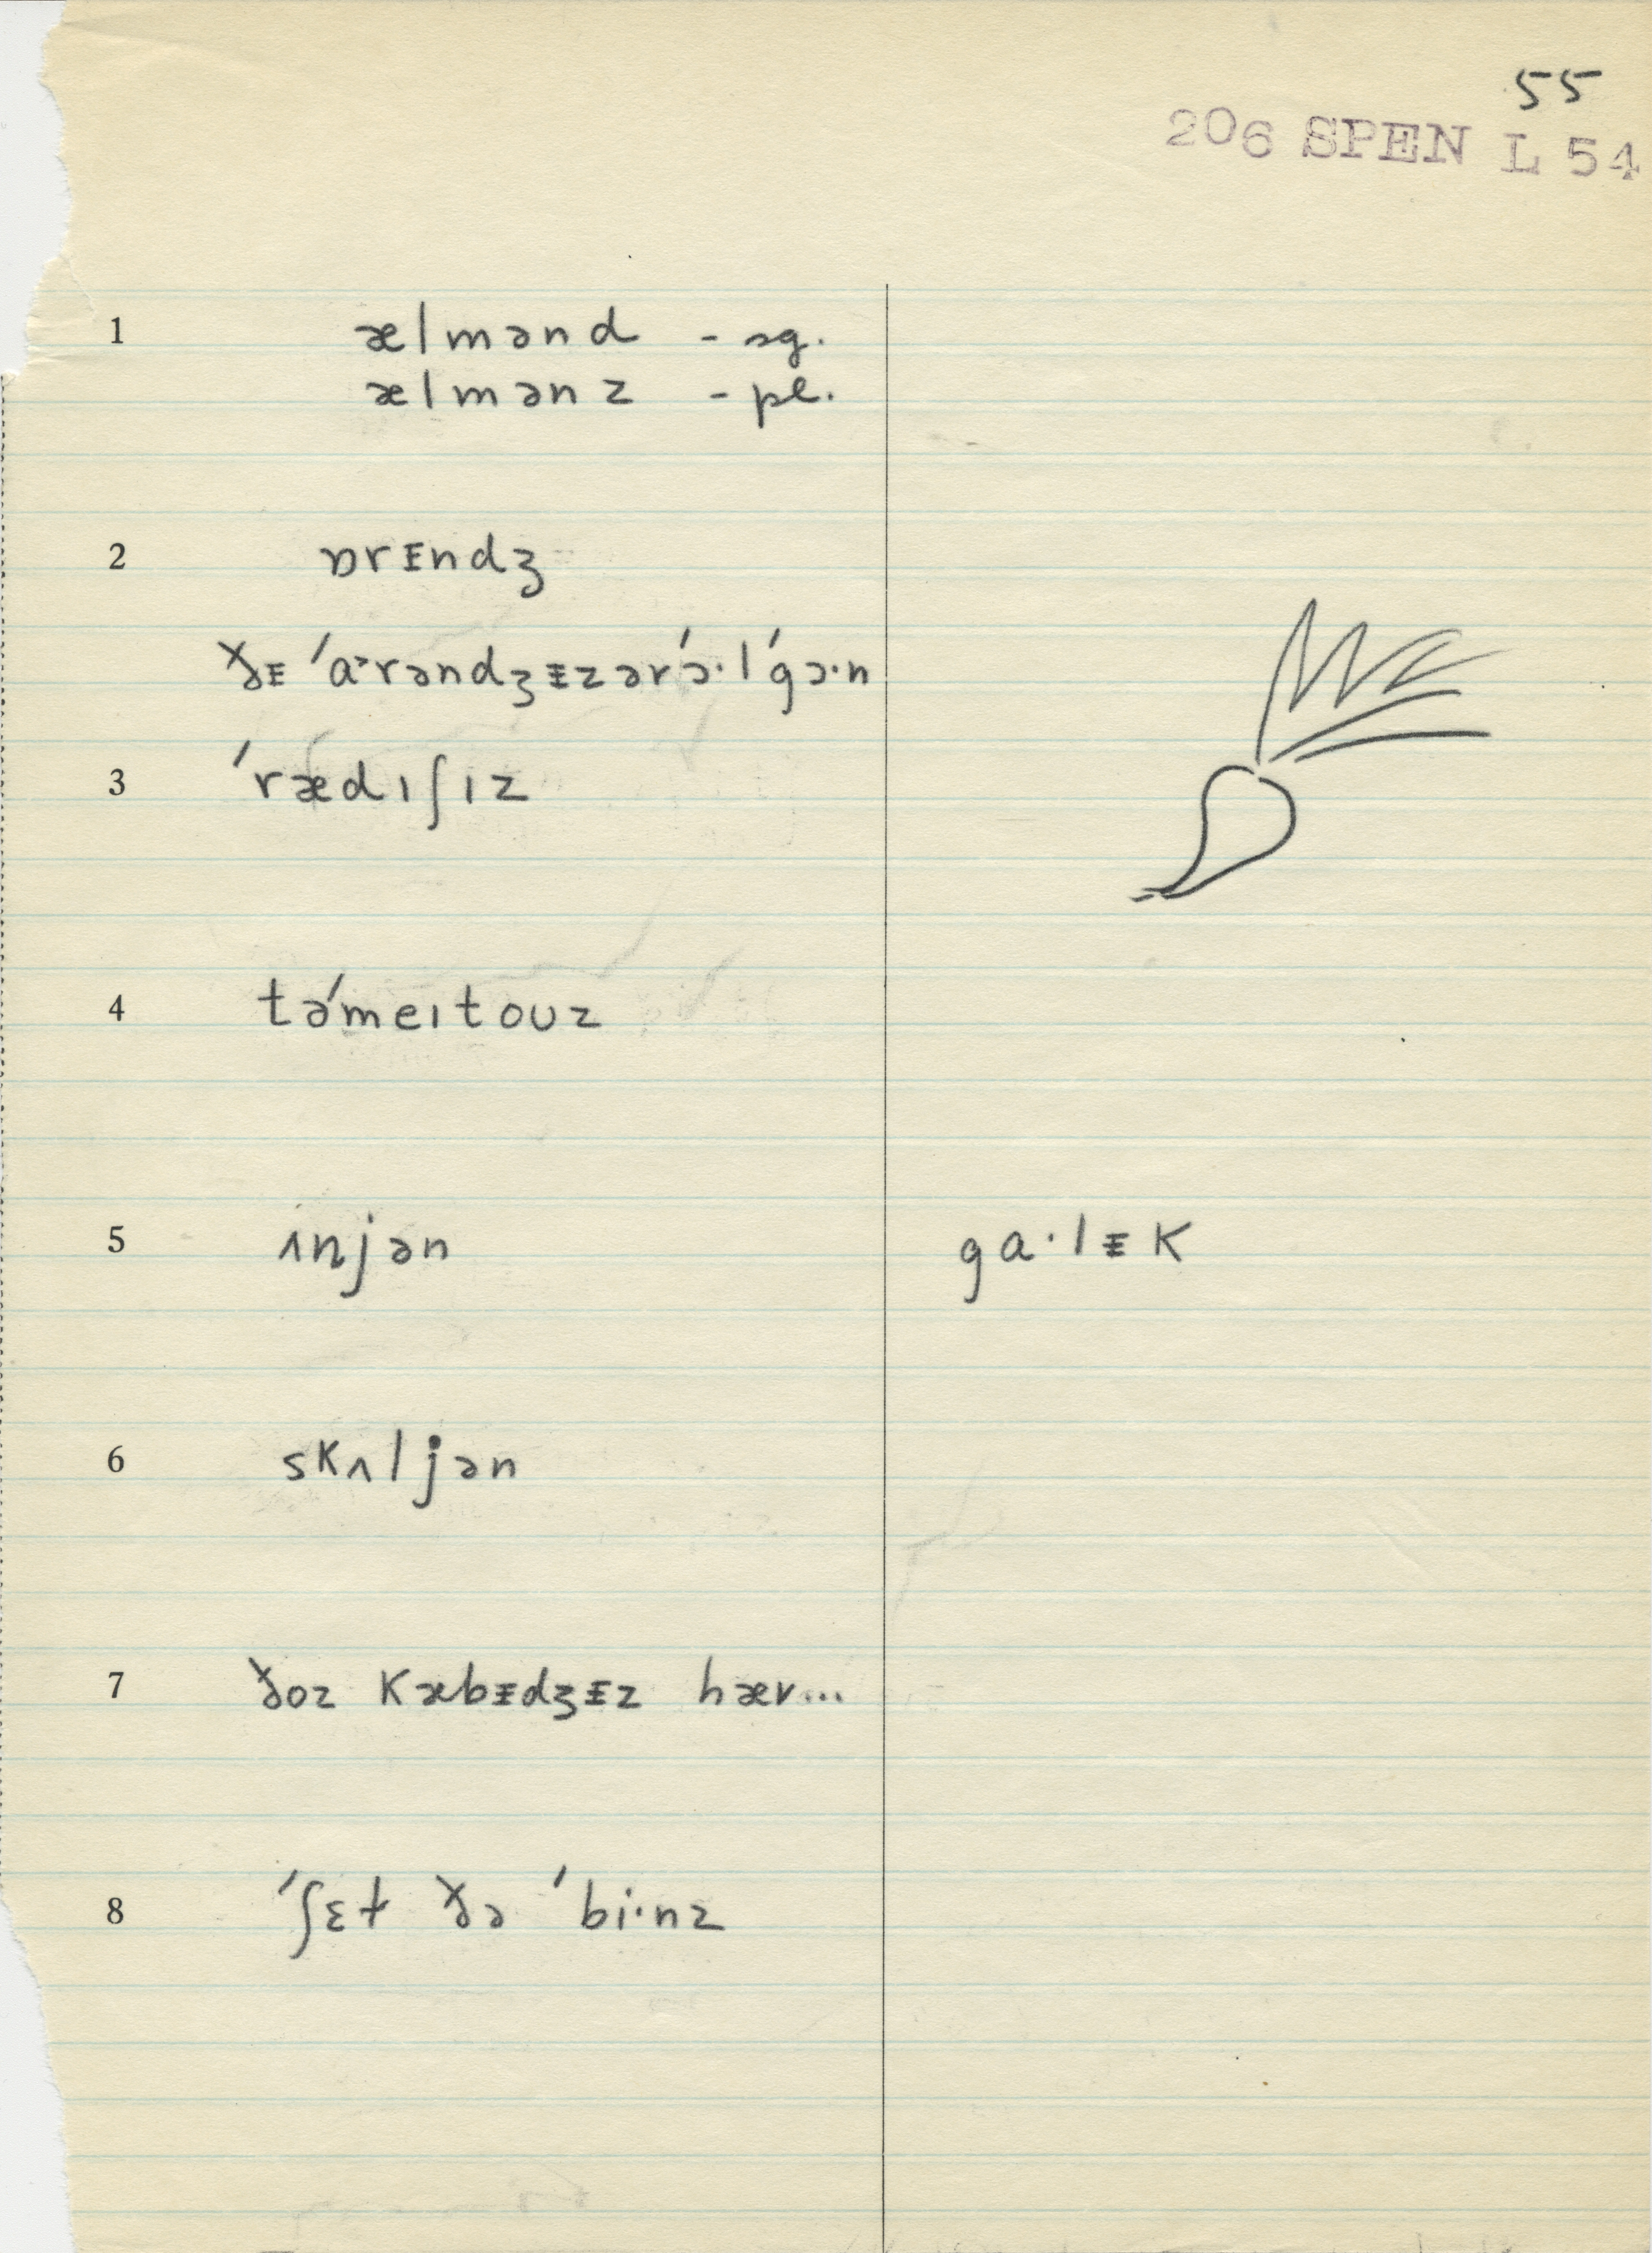 55
206 SPEN L 54
1 ælmənd - sg.
ælmənz - pl.
2 ɒrᵻndʒ
ðᵻ ˈɑ˞rəndʒᵻzərˈɔ·lˈgɔ·n
3 ˈrædɪʃɪz
4 təˈmeɪtoʊz
5 ʌnjən gɑ·lᵻk
6 skʌljən
7 ðoz kæbᵻdʒᵻz hæv...
8 ˈʃɛɫ ðə ˈbi·nz